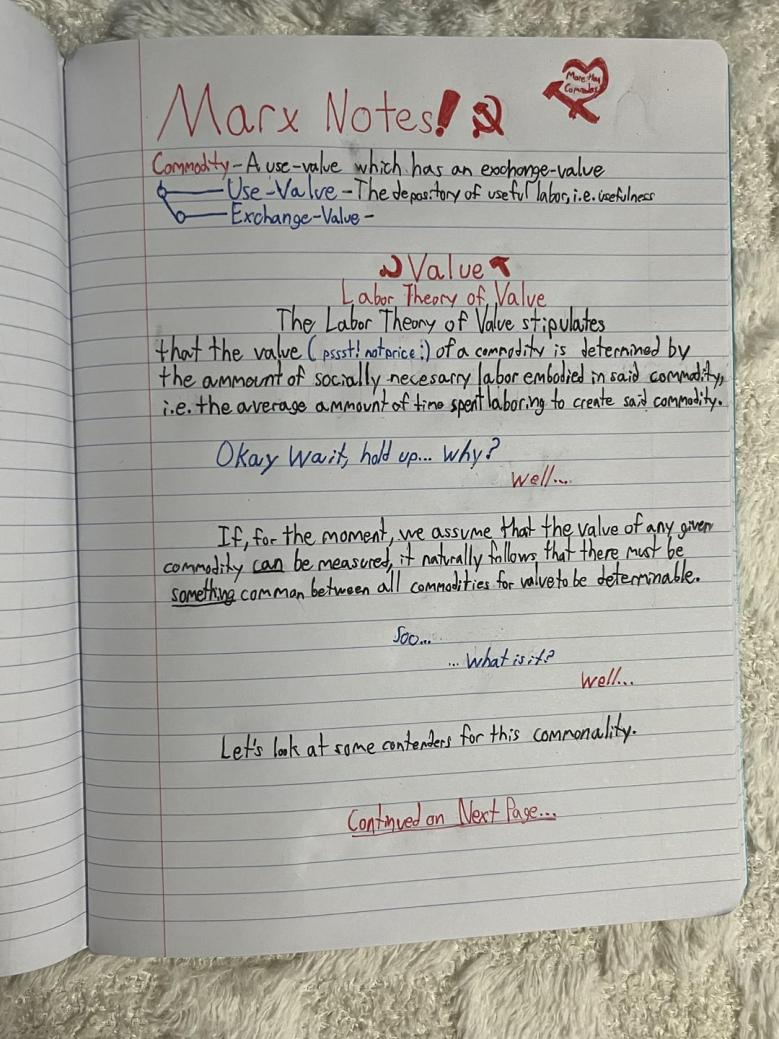 Marx Notes!
More than Comrades
Commodity - A use-value which has an exchange-value
Use-Value - The depository of useful labor, i.e. usefulness
Exchange-Value -
Value
Labor Theory of Value
The Labor Theory of Value stipulates
that the value (pssst! not price :) of a commodity is determined by
the ammount of socially necesarry labor embodied in said commodity,
i.e. the average ammount of time spent laboring to create said commodity.
Okay wait, hold up... Why?
Well...
If, for the moment, we assume that the value of any given
commodity can be measured, it naturally follows that there must be
something common between all commodities for value to be determinable.
Soo...
... What is it?
Well...
Let's look at some contenders for this commonality.
Continued on Next Page...